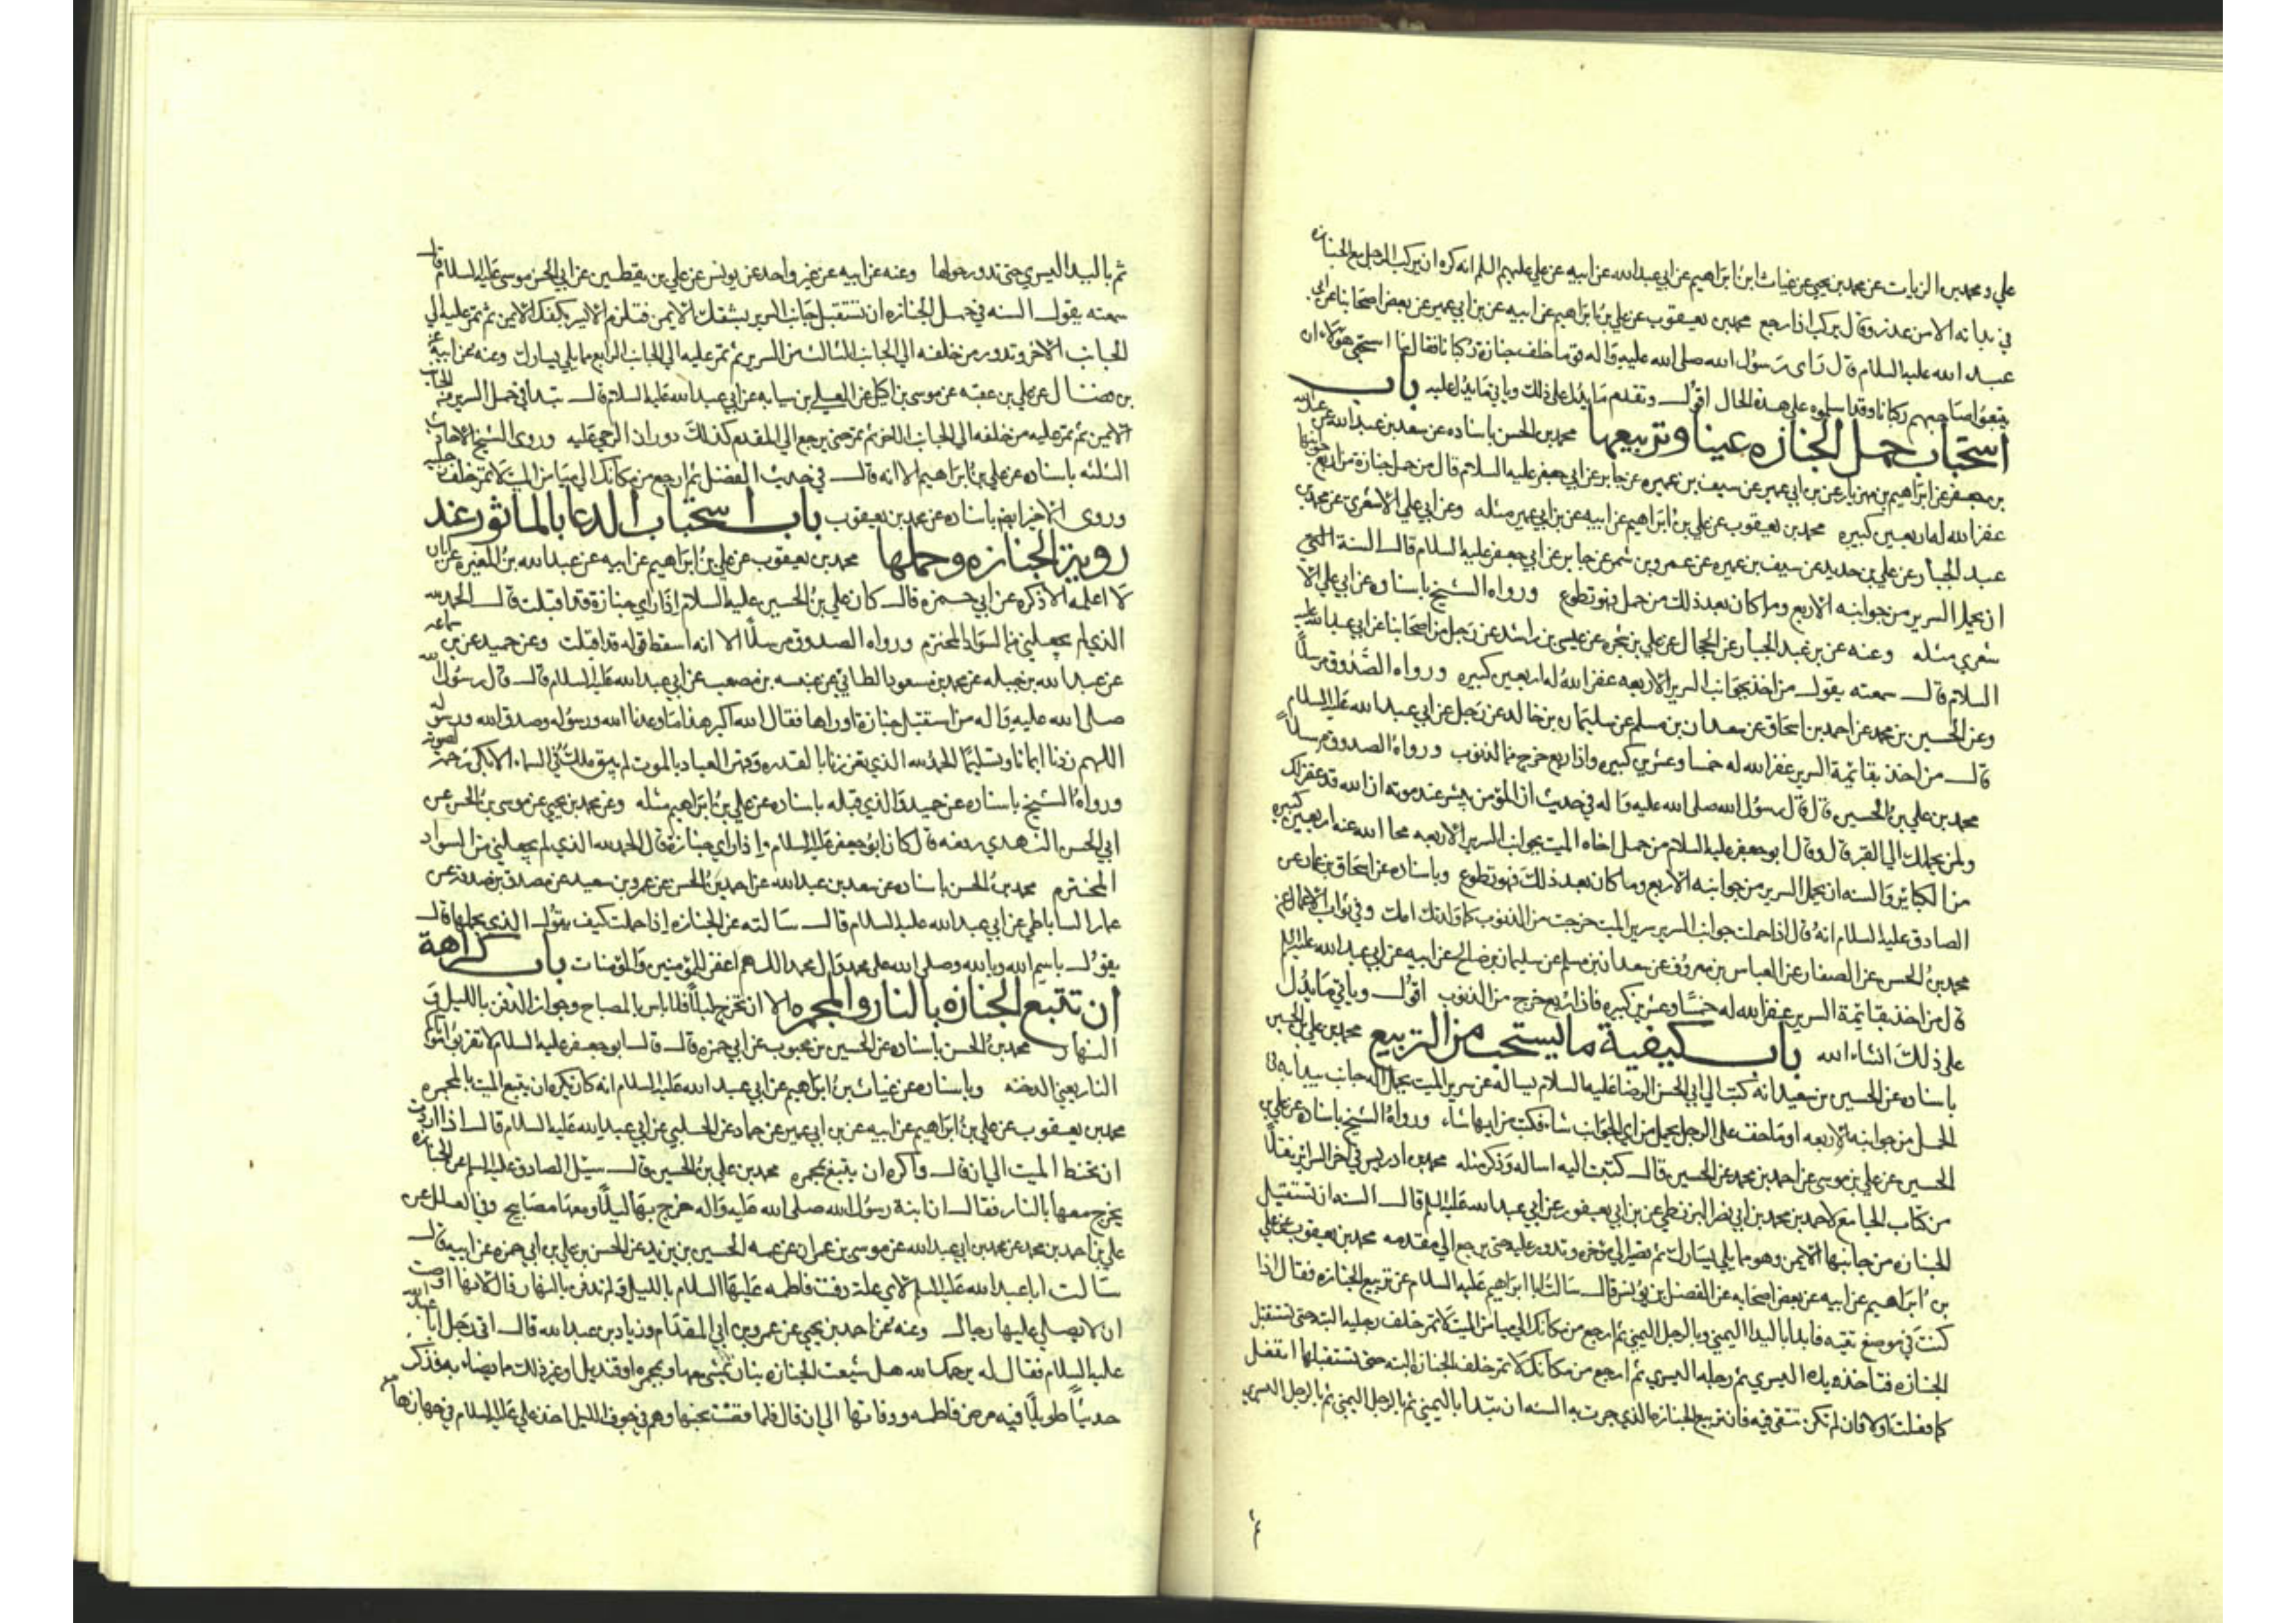 علي ومحمد بن الزيات عن محمد بن يحيي عن غياث ابن ابراهيم عن ابي عبد الله عن ابيه عن علي عليهم السلم انه كره ان يركب الرجل مع الجنازه
في بدأته الا من عذر وقال يركب اذا رجع محمد بن يعقوب عن علي بن ابراهيم عن ابيه عن بن ابي عمير عن بعض اصحابنا عن ابي
عبد الله عليه السلام قال رأى رسول الله صلى الله عليه واله قوما خلف جنازة ركبانا فقال اما استحيى هؤلاء ان
يتبعوا صاحبهم ركبانا وقد اسلموه على هذه الحال اقول وتقدم ما يدل على ذلك وياتي ما يدل عليه باب
استحباب حمل الجنازه عينا وتربيعها محمد بن الحسن باسناده عن سعد بن عبد الله عن عبد الله
بن جعفر عن ابراهيم بن مهزيار عن بن ابي عمير عن سيف بن عميره عن جابر عن ابي جعفر عليه السلام قال من حمل جنازة من اربع جوانبها
غفر الله له اربعين كبيره محمد بن يعقوب عن علي بن ابراهيم عن ابيه عن بن ابي عمير مثله وعن ابي علي الاشعري عن محمد بن
عبد الجبار عن علي بن حديد عن سيف بن عميره عن عمرو بن شمر عن جابر عن ابي جعفر عليه السلام قال السنة
ان يحمل السرير من جوانبه الاربع وما كان بعد ذلك من حمل فهو تطوع ورواه الشيخ باسناده عن ابي علي الا
شعري مثله وعنه عن بن عبد الجبار عن الحجال عن علي بن شجره عن عيسى بن راشد عن رجل من اصحابنا عن ابي عبد الله عليه
السلام قال سمعته يقول من اخذ بجوانب السرير الاربعه غفر الله له اربعين كبيره ورواه الصدوق مرسلاً
وعن الحسين بن محمد عن احمد بن اسحاق عن سعدان بن مسلم عن سليمان بن خالد عن رجل عن ابي عبد الله عليه السلام
قال من اخذ بقائمة السرير غفر الله له خمسا وعشرين كبيره واذا ربع خرج من الذنوب ورواه الصدوق مرسلاً
محمد بن علي بن الحسين قال قال رسول الله صلى الله عليه واله في حديث ان المؤمن يبشر عند موته ان الله قد غفر لك
ولمن يحملك الي القبر قال وقال ابو جعفر عليه السلام من حمل اخاه الميت بجوانب السرير الاربعه محا الله عنه اربعين كبيره
من الكبائر والسنه ان يحمل السرير من جوانبه الاربع وما كان بعد ذلك فهو تطوع وباسناده عن اسحاق بن عمار عن
الصادق عليه السلام انه قال اذا حملت جوانب السرير سرير الميت خرجت من الذنوب كما ولدتك امك وفي ثواب الاعمال عن
محمد بن الحسن عن الصفار عن العباس بن معروف عن سعدان بن مسلم عن سليمان بن صالح عن ابيه عن ابي عبد الله عليه السلم
قال من اخذ بقائمة السرير غفر الله له خمسًا وعشرين كبيره فاذا ربع خرج من الذنوب اقول وياتي ما يدل
على ذلك انشاء الله باب كيفية ما يستحب من التربيع محمد بن علي بن الحسين
باسناده عن الحسين بن سعيد انه كتب الي ابي الحسن الرضا عليه السلام يساله عن سرير الميت يحمل اله جانب يبدأ به في
الحمل من جوانبه الاربعه او ما خف على الرجل يحمل من اي الجوانب شاء فكتب من ايها شاء ورواه الشيخ باسناده عن علي بن
الحسين عن علي بن موسى عن احمد بن محمد عن الحسين قال كتبت اليه اساله وذكر مثله محمد بن ادريس في آخر السرائر نقلًا
من كتاب الجامع لاحمد بن محمد بن ابي نصر البزنطي عن بن ابي يعفور عن ابي عبد الله عليه السلم قال السنه ان تستقبل
الجنازه من جانبها الايمن وهو ما يلي يسارك ثم تصير الي مؤخره وتدور عليه حتى ترجع الي مقدمه محمد بن يعقوب عن علي
بن ابراهيم عن ابيه عن بعض اصحابه عن الفضل بن يونس قال سالت ابا ابراهيم عليه السلام عن تربيع الجنازه فقال اذا
كنت في موضع تقيه فابدا باليد اليمني وبالرجل اليمني ثم ارجع من مكانك الي ميامن الميت لا تمر خلف رجليه البته حتى تستقبل
الجنازه فتاخذ يده اليسري ثم رجله اليسري ثم ارجع من مكانك لا تمر خلف الجنازه البته حتى تستقبلها تفعل
كما فعلت اولا فان لم تكن تتقي فيه فان تربيع الجنازه الذي جرت به السنه ان تبدأ باليمني ثم بالرجل اليمني ثم بالرجل اليسري
ثم باليد اليسري حتى تدور حولها وعنه عن ابيه عن غير واحد عن يونس عن علي بن يقطين عن ابي الحسن موسى عليه السلام قال
سمعته يقول السنه في حمل الجنازه ان تستقبل جانب السرير بشقك الايمن فتلزم الايسر بكفك الايمن ثم تمر عليه الي
الجانب الاخر وتدور من خلفه الي الجانب الثالث من السرير ثم تمر عليه الي الجانب الرابع مما يلي يسارك وعنه عن ابيه عن
بن فضال عن علي بن عقبه عن موسى بن اكيل عن العلي بن سيابه عن ابي عبد الله عليه السلام قال تبدأ في حمل السرير من الجانب
الايمن ثم تمر عليه من خلفه الي الجانب الاخر ثم تمر حتى ترجع الي المقدم كذلك دوران الرحي عليه وروى الشيخ الاحاديث
الثلثه باسناده عن علي بن ابراهيم الا انه قال في حديث الفضل ثم ارجع من مكانك الي ميامن الميت لا تمر خلف رجليه
وروى الاخير ايضا باسناده عن محمد بن يعقوب باب استحباب الدعا بالماثور عند
روية الجنازه وحملها محمد بن يعقوب عن علي بن ابراهيم عن ابيه عن عبد الله بن المغيره عن ابان
لا اعلمه الا ذكره عن ابي حمزه قال كان علي بن الحسين عليه السلام اذا راي جنازة قد اقبلت قال الحمد لله
الذي لم يجعلني من السواد المخترم ورواه الصدوق مرسلًا الا انه اسقط قوله قد اقبلت وعن حميد عن بن سماعه
عن عبد الله بن جبله عن محمد بن مسعود الطائي عن عنبسه بن مصعب عن ابي عبد الله عليه السلام قال قال رسول الله
صلى الله عليه واله من استقبل جنازة او راها فقال الله اكبر هذا ما وعدنا الله ورسوله وصدق الله ورسوله
اللهم زدنا ايمانا وتسليمًا الحمد لله الذي تعزز بالقدره وقهر العباد بالموت لم يبق ملك في السماء الا بكى رحمة لصوته
ورواه الشيخ باسناده عن حميد والذي قبله باسناده عن علي بن ابراهيم مثله وعن محمد بن يحيي عن موسى بن الحسن عن
ابي الحسن النهدي رفعه قال كان ابو جعفر عليه السلام اذا راي جنازة قال الحمد لله الذي لم يجعلني من السواد
المخترم محمد بن الحسن باسناده عن سعد بن عبد الله عن احمد بن الحسن عن عمرو بن سعيد عن مصدق بن صدقه عن
عمار الساباطي عن ابي عبد الله عليه السلام قال سالته عن الجنازه اذا حملت كيف يقول الذي يحملها قال
يقول باسم الله وبالله وصلى الله على محمد وال محمد اللهم اغفر للمؤمنين والمؤمنات باب كراهة
ان تتبع الجنازه بالنار والمجمره الا ان تخرج ليلًا فلا باس بالمصباح وجواز الدفن بالليل و
النهار محمد بن الحسن باسناده عن الحسين بن محبوب عن ابي حمزه قال قال ابو جعفر عليه السلام لا تقربوا موتاكم
النار يعني الدخنه وباسناده عن غياث بن ابراهيم عن ابي عبد الله عليه السلام انه كان يكره ان يتبع الميت بالمجمره
محمد بن يعقوب عن علي بن ابراهيم عن ابيه عن بن ابي عمير عن حماد عن الحلبي عن ابي عبد الله عليه السلام قال اذا اردت
ان تحنط الميت الي ان قال واكره ان يتبع بمجمره محمد بن علي بن الحسين قال سئل الصادق عليه السلم عن الجنازه
يخرج معها بالنار فقال ان ابنة رسول الله صلى الله عليه واله خرج بها ليلًا ومعها مصابيح وفي العلل عن
علي بن احمد بن محمد عن محمد بن ابي عبد الله عن موسى بن عمران عن عمه الحسين بن يزيد عن الحسن بن علي بن ابي حمزه عن ابيه قال
سالت ابا عبد الله عليه السلم لاي علة دفنت فاطمه عليها السلام بالليل ولم تدفن بالنهار قال لانها اوصت
ان لا يصلي عليها رجال وعنه عن احمد بن يحيي عن عمرو بن ابي المقدام وزياد بن عبد الله قال اتى رجل ابا عبد الله
عليه السلام فقال له يرحمك الله هل شيعت الجنازه بنار تمشى معها ومجمره او قنديل او غير ذلك مما يضاء به فذكر
حديثًا طويلًا فيه مرض فاطمه ووفاتها الي ان قال فلما قضت نحبها وهم في جوف الليل اخذ علي عليه السلام في جهازها